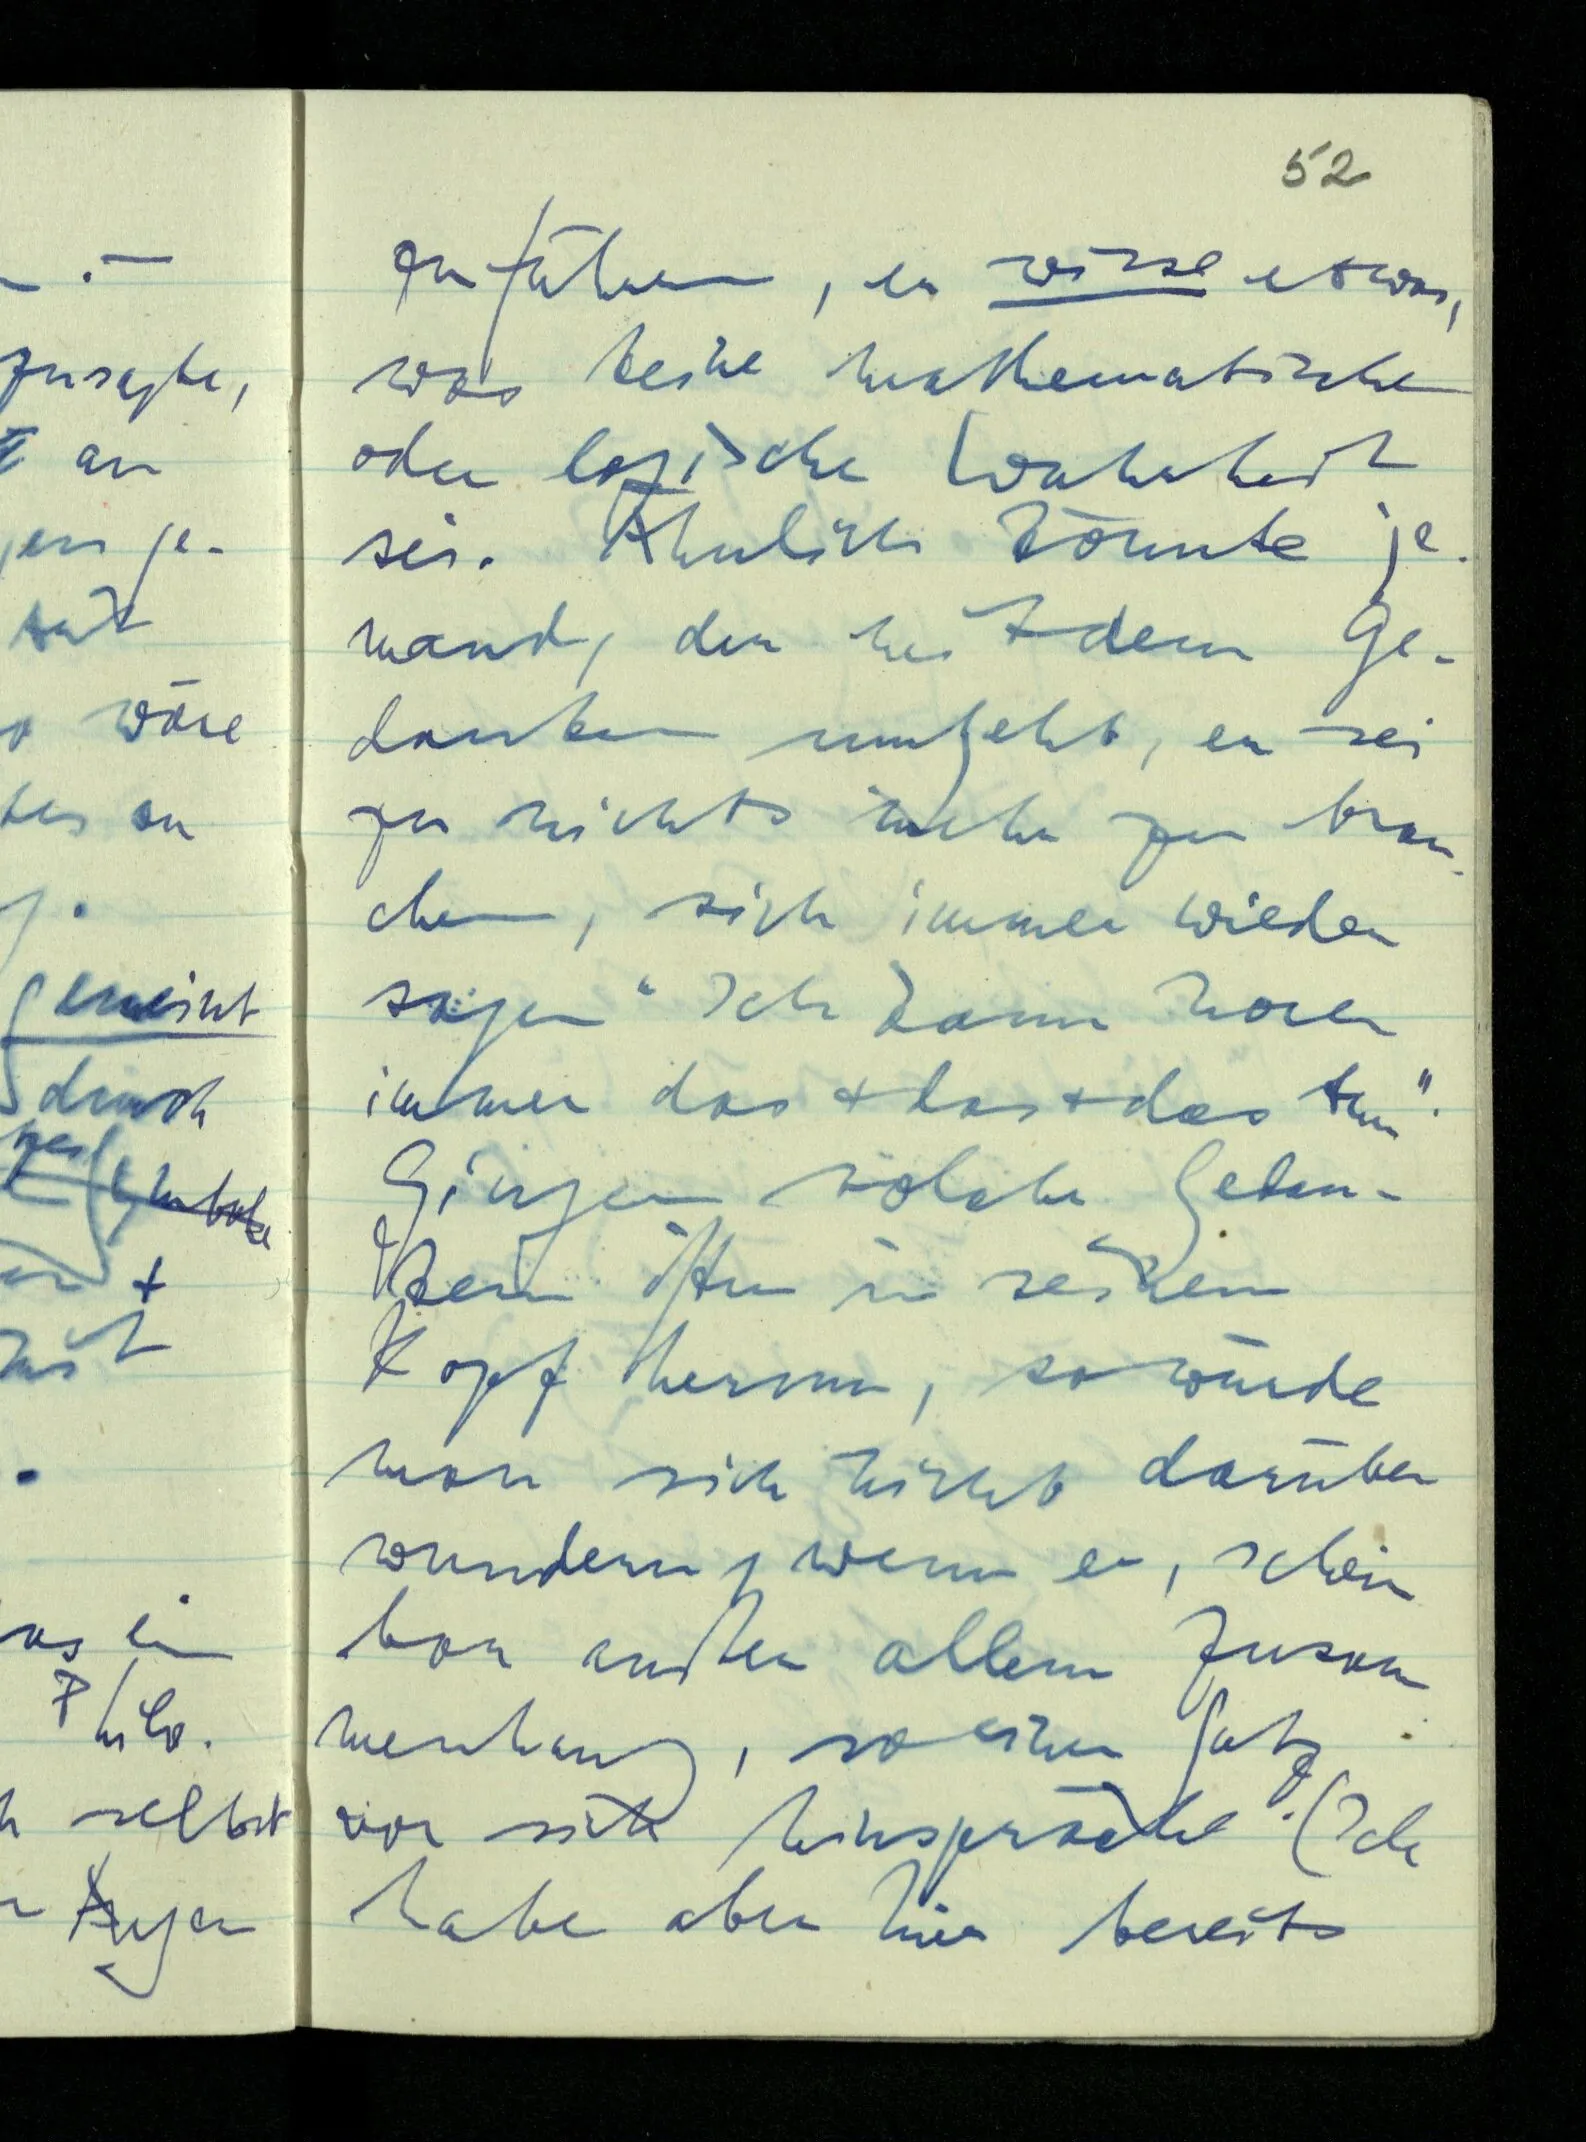 . —
zusagte,
an
ge-
wäre
an
gemeint
durch
+
mit
ein
Philo-
selbst
Augen
52
zu führen, er wisse etwas,
was keine mathematische
oder logische Wahrheit
sei. Ähnlich könnte je-
mand, der mit dem Ge-
danken umgeht, er sei
zu nichts mehr zu brau-
chen, sich immer wieder
sagen "Ich kann noch
immer das + das + das tun".
Gingen solche Gedan-
ken öfter in seinem
Kopf herum, so würde
man sich nicht darüber
wundern, wenn er, schein
bar außer allem Zusam
menhang, so einen Satz
vor sich hinspräche. (Ich
habe aber hier bereits